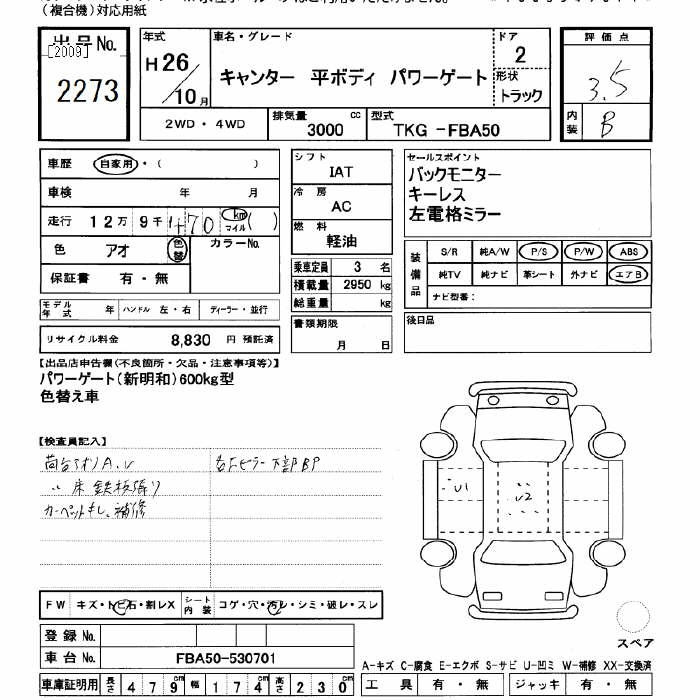 （複合機）対応用紙
出品No.
[2009]
2273
年式
H26/10月
車名・グレード
キャンター 平ボディ パワーゲート
ドア
2
形状
トラック
評価点
3.5
内装
B
2WD・4WD
排気量
3000 cc
型式
TKG -FBA50
車歴 自家用・( )
車検 年 月
走行 12万 9千 470 km マイル ( )
色 アオ 色替 カラーNo.
保証書 有・無
モデル年式 年 ハンドル 左・右 ディーラー・並行
リサイクル料金 8,830 円 預託済
シフト
IAT
冷房
AC
燃料
軽油
乗車定員 3 名
積載量 2950 kg
総重量 kg
書類期限
月 日
セールスポイント
バックモニター
キーレス
左電格ミラー
装備品
S/R 純A/W P/S P/W ABS
純TV 純ナビ 革シート 外ナビ エアB
ナビ型番：
後日品
【出品店申告欄(不良箇所・欠品・注意事項等)】
パワーゲート(新明和)600kg型
色替え車
【検査員記入】
荷台アオリA.U
〃 床鉄板張り
カーペットキレ、補修
右Fピラー下部BP
U1
U2
FW キズ・トビ石・割レX シート内装 コゲ・穴・汚レ・シミ・破レ・スレ
登録No.
車台No. FBA50-530701
車庫証明用 長さ 479cm 幅 174cm 高さ 230cm
スペア
A-キズ C-腐食 E-エクボ S-サビ U-凹ミ W-補修 XX-交換済
工具 有・無 ジャッキ 有・無